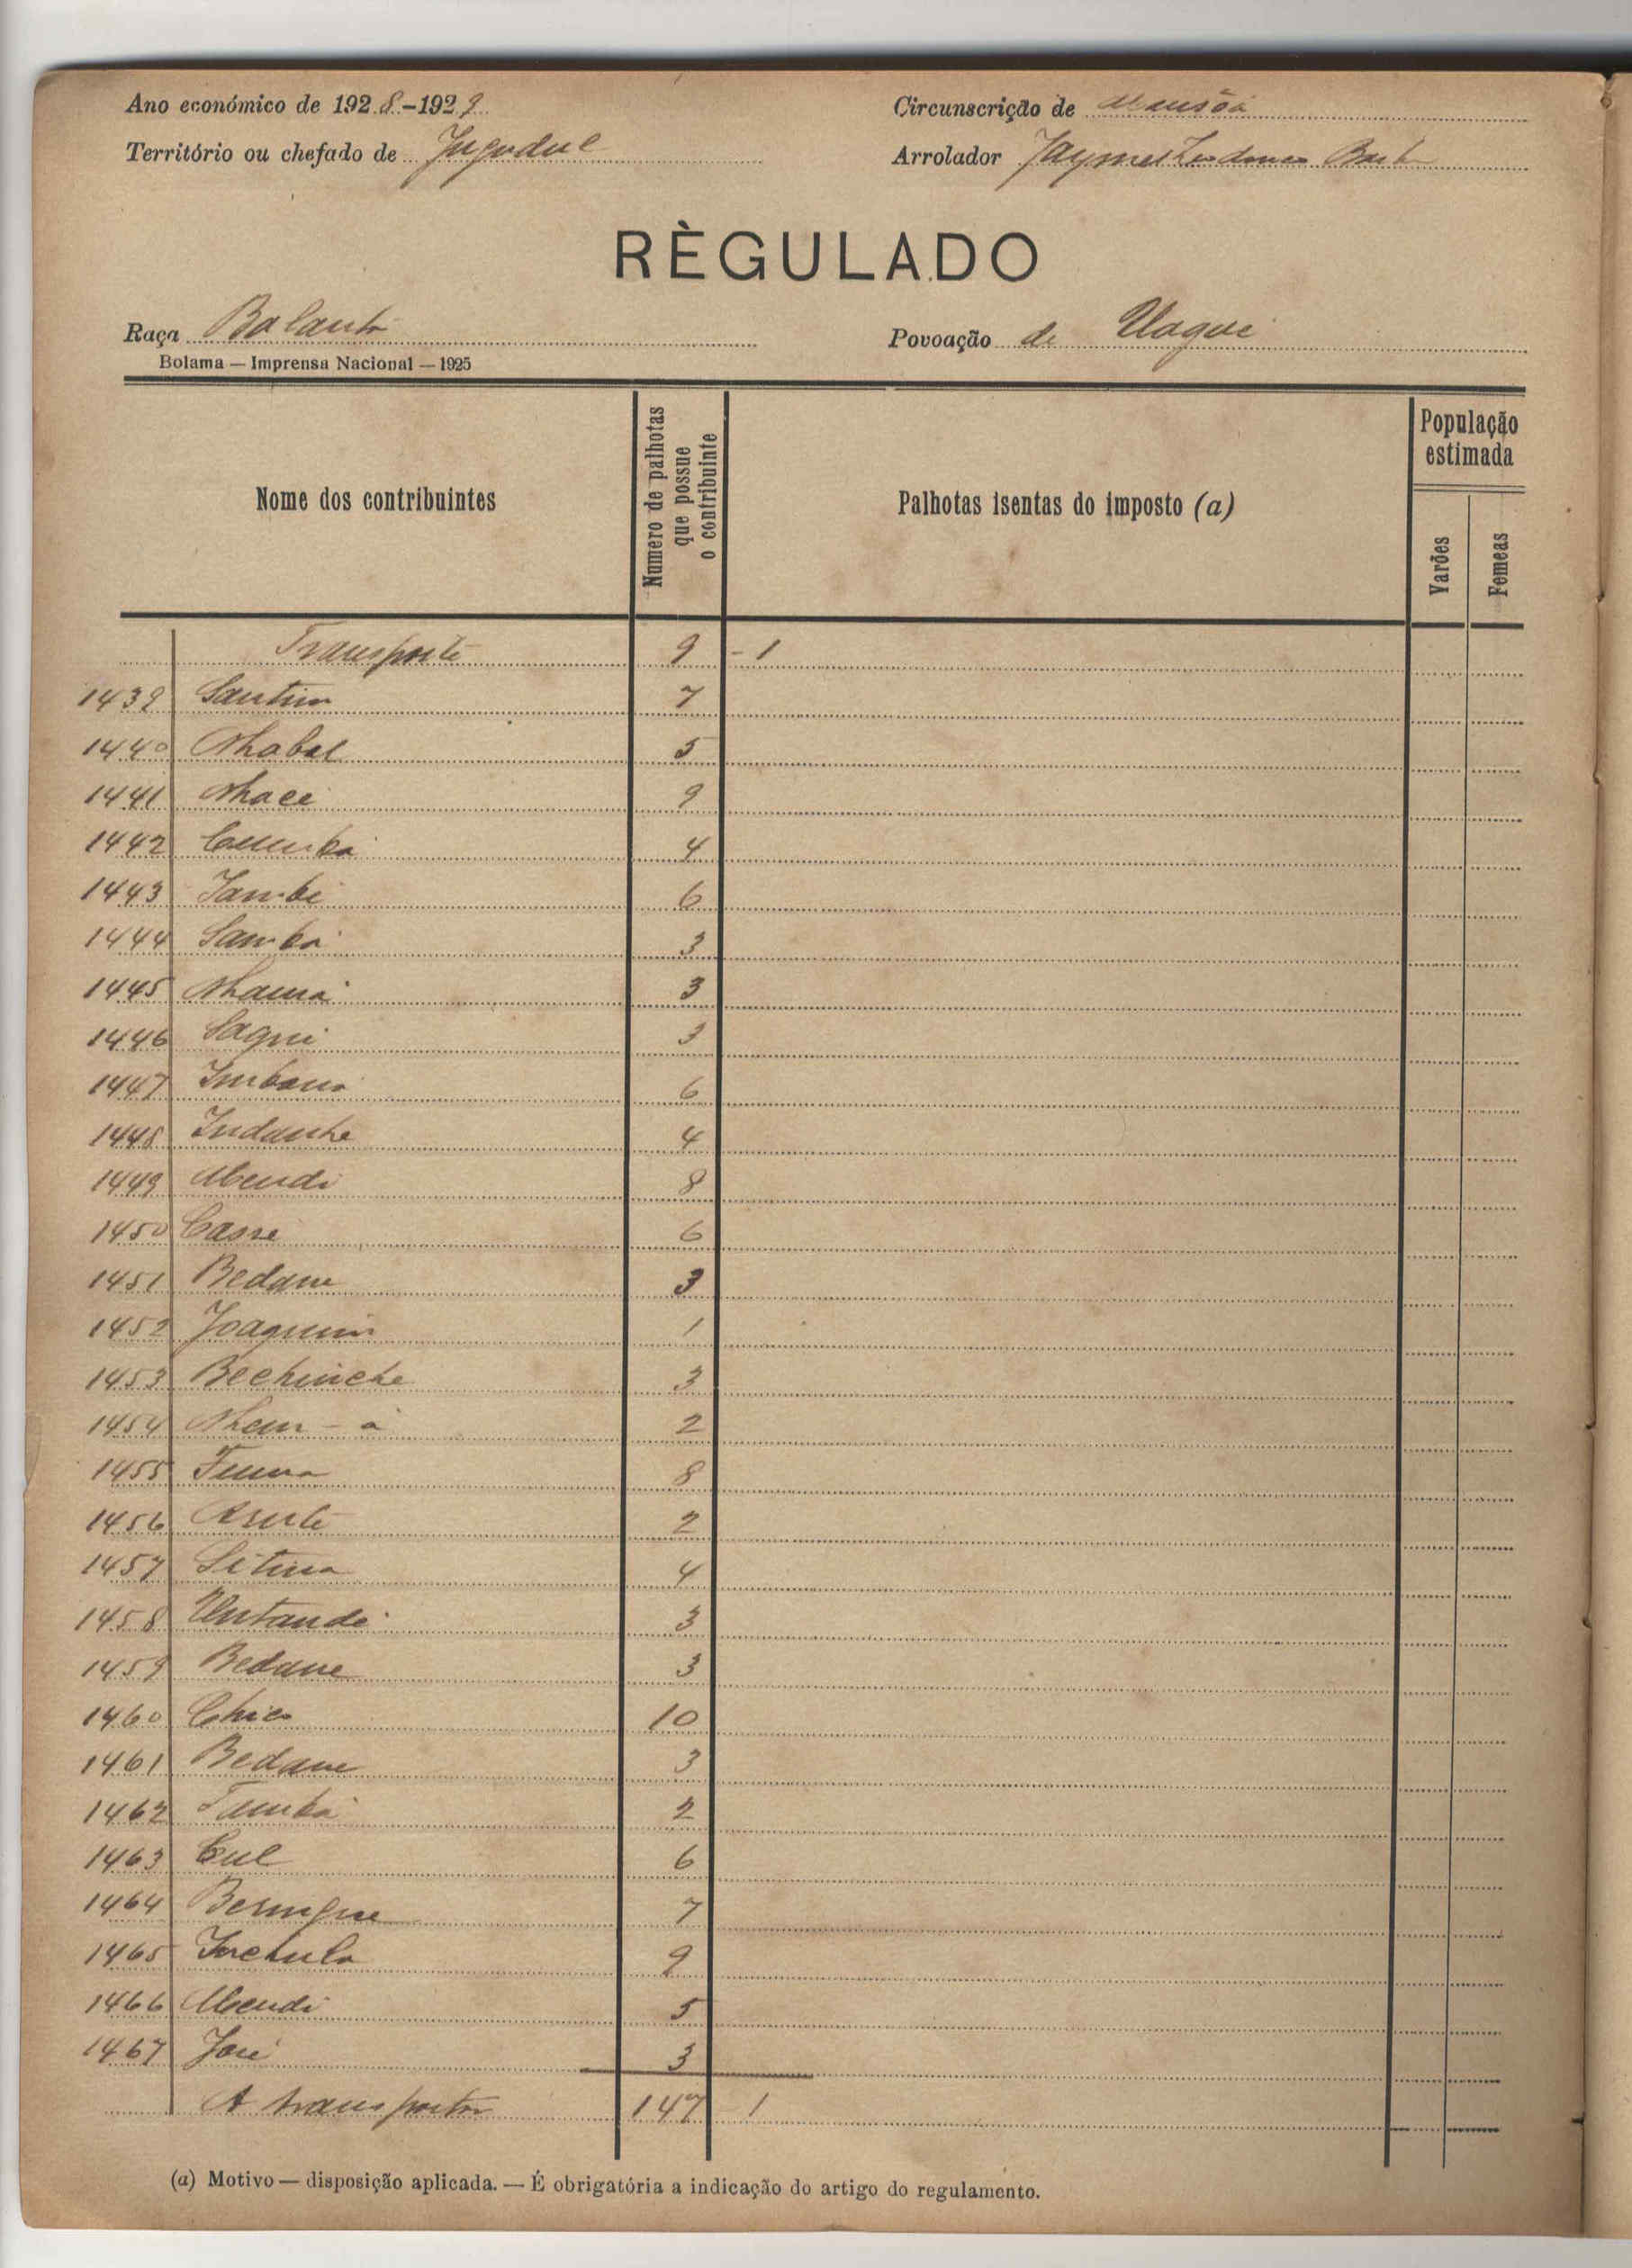 Ano económico de 1928-1929
Circunscrição de Mansôa
Território ou chefado de Jugudul
Arrolador Jayme
RÈGULADO
Raça Balanta
Povoação de Uaque
Bolama — Imprensa Nacional — 1925
Nome dos contribuintes
Numero de palhotas que possue o contribuinte
Palhotas isentas do imposto (a)
População estimada
Varões
Femeas
Transporte 9 - 1
1439 Santim 7
1440 Nhabal 5
1441 Nhace 9
1442 Cumba 4
1443 Jambe 6
1444 Samba 3
1445 Nhama 3
1446 Sagni 3
1447 Imbana 6
1448 Indanhe 4
1449 Mendi 8
1450 Casse 6
1451 Bedam 3
1452 Joaquim 1
1453 Bechinche 3
1454 Nhem - á 2
1455 8
1456 2
1457 4
1458 3
1459 Bedane 3
1460 Chico 10
1461 Bedane 3
1462 Tamba 2
1463 Cul 6
1464 7
1465 Inchula 9
1466 Mendi 5
1467 José 3
A transportar 147 1
(a) Motivo — disposição aplicada. — É obrigatória a indicação do artigo do regulamento.